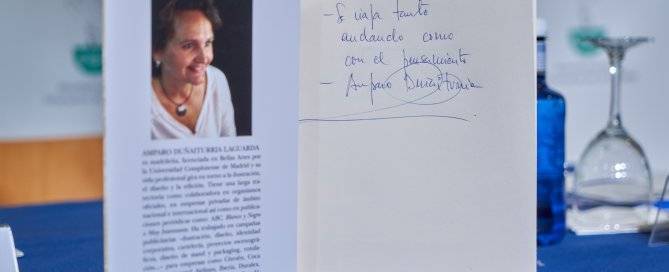 - Se viaja tanto
andando como
con el pensamiento
- Amparo
AMPARO DUÑAITURRIA LAGUARDA
es madrileña, licenciada en Bellas Artes por
la Universidad Complutense de Madrid y su
vida profesional gira en torno a la ilustración,
el diseño y la edición. Tiene una larga tra-
yectoria como colaboradora en organismos
oficiales, en empresas privadas de ámbito
nacional e internacional así como en publica-
ciones periódicas como: ABC, Blanco y Negro
o Muy Interesante. Ha trabajado en campañas
publicitarias -ilustración, diseño, identidad
corporativa, cartelería, proyectos escenográ-
ficos, diseño de stand y packaging, rotula-
ción...- para empresas como Citroën, Coca
Airlines, Iberia, Duralex,